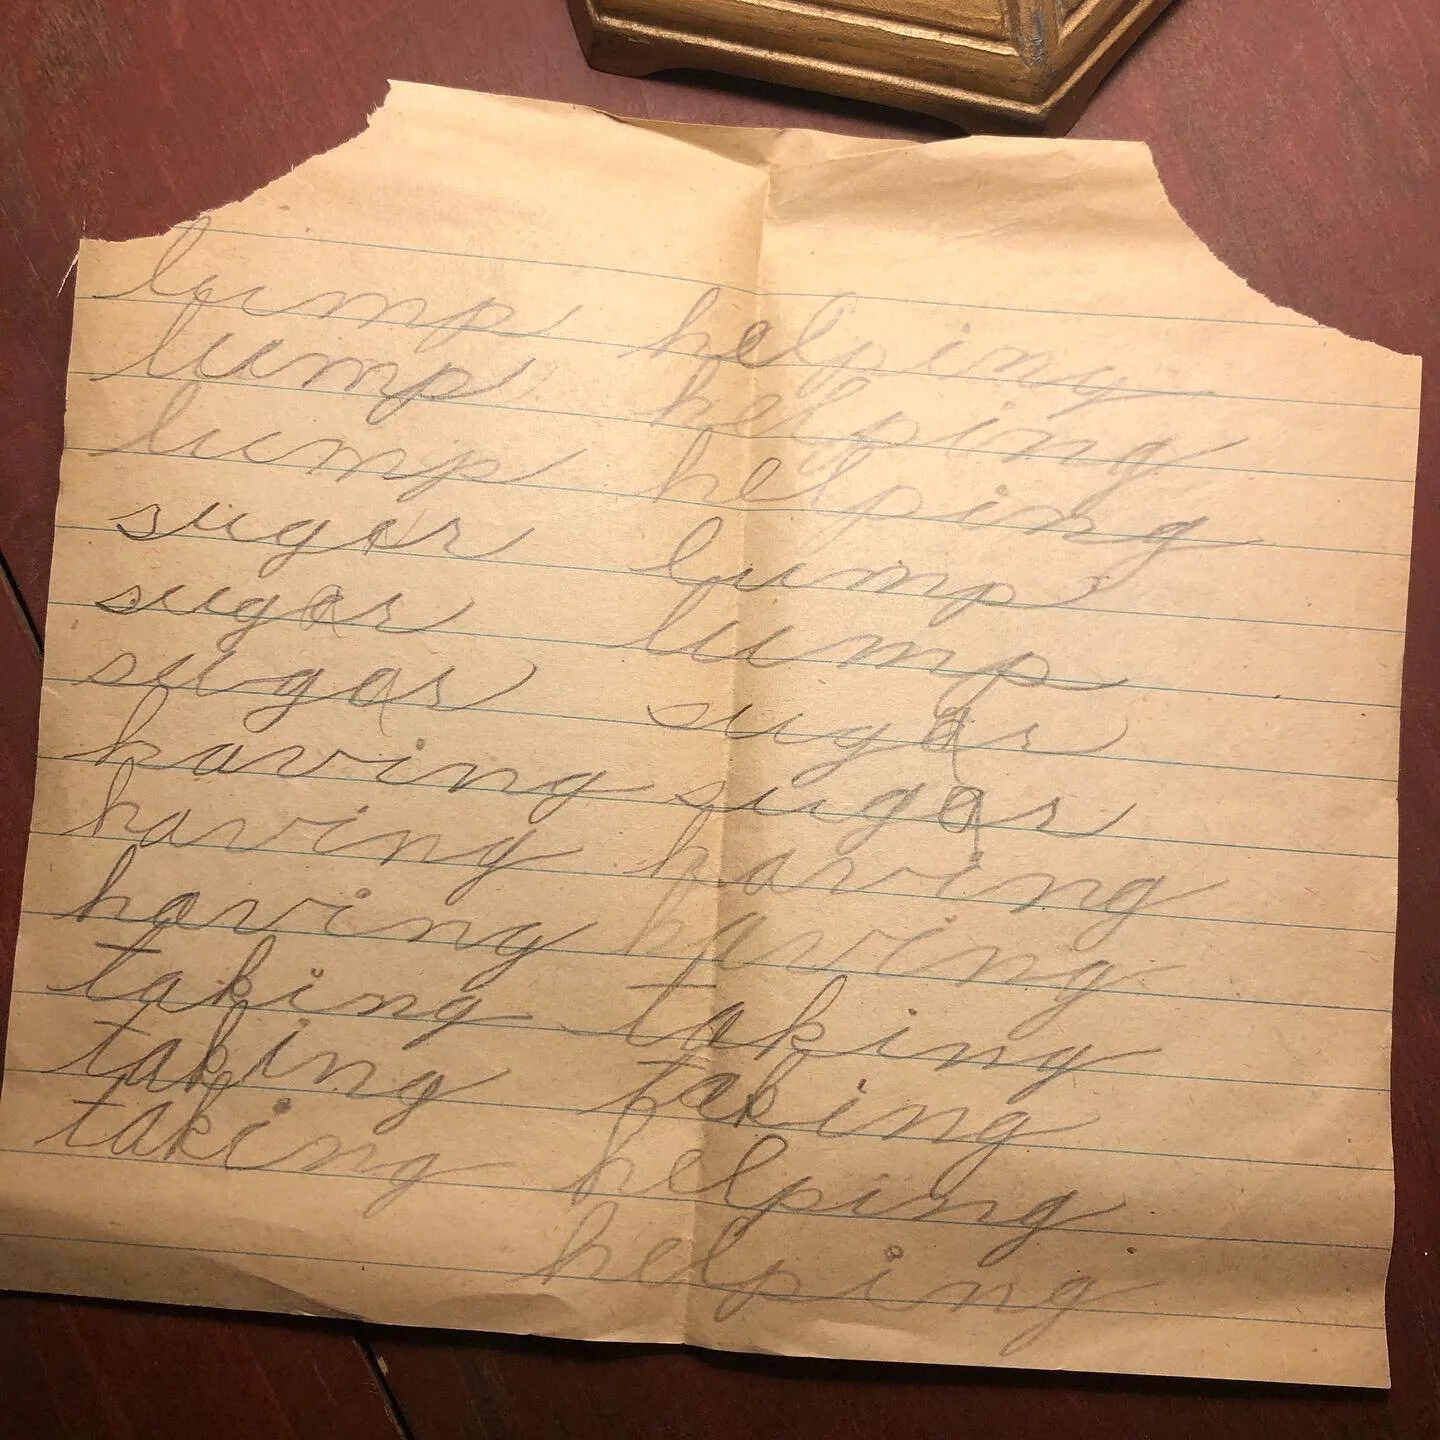 lump helping
lump helping
lump helping
sugar lump
sugar lump
sugar sugar
having sugar
having having
having having
taking taking
taking taking
taking helping
helping